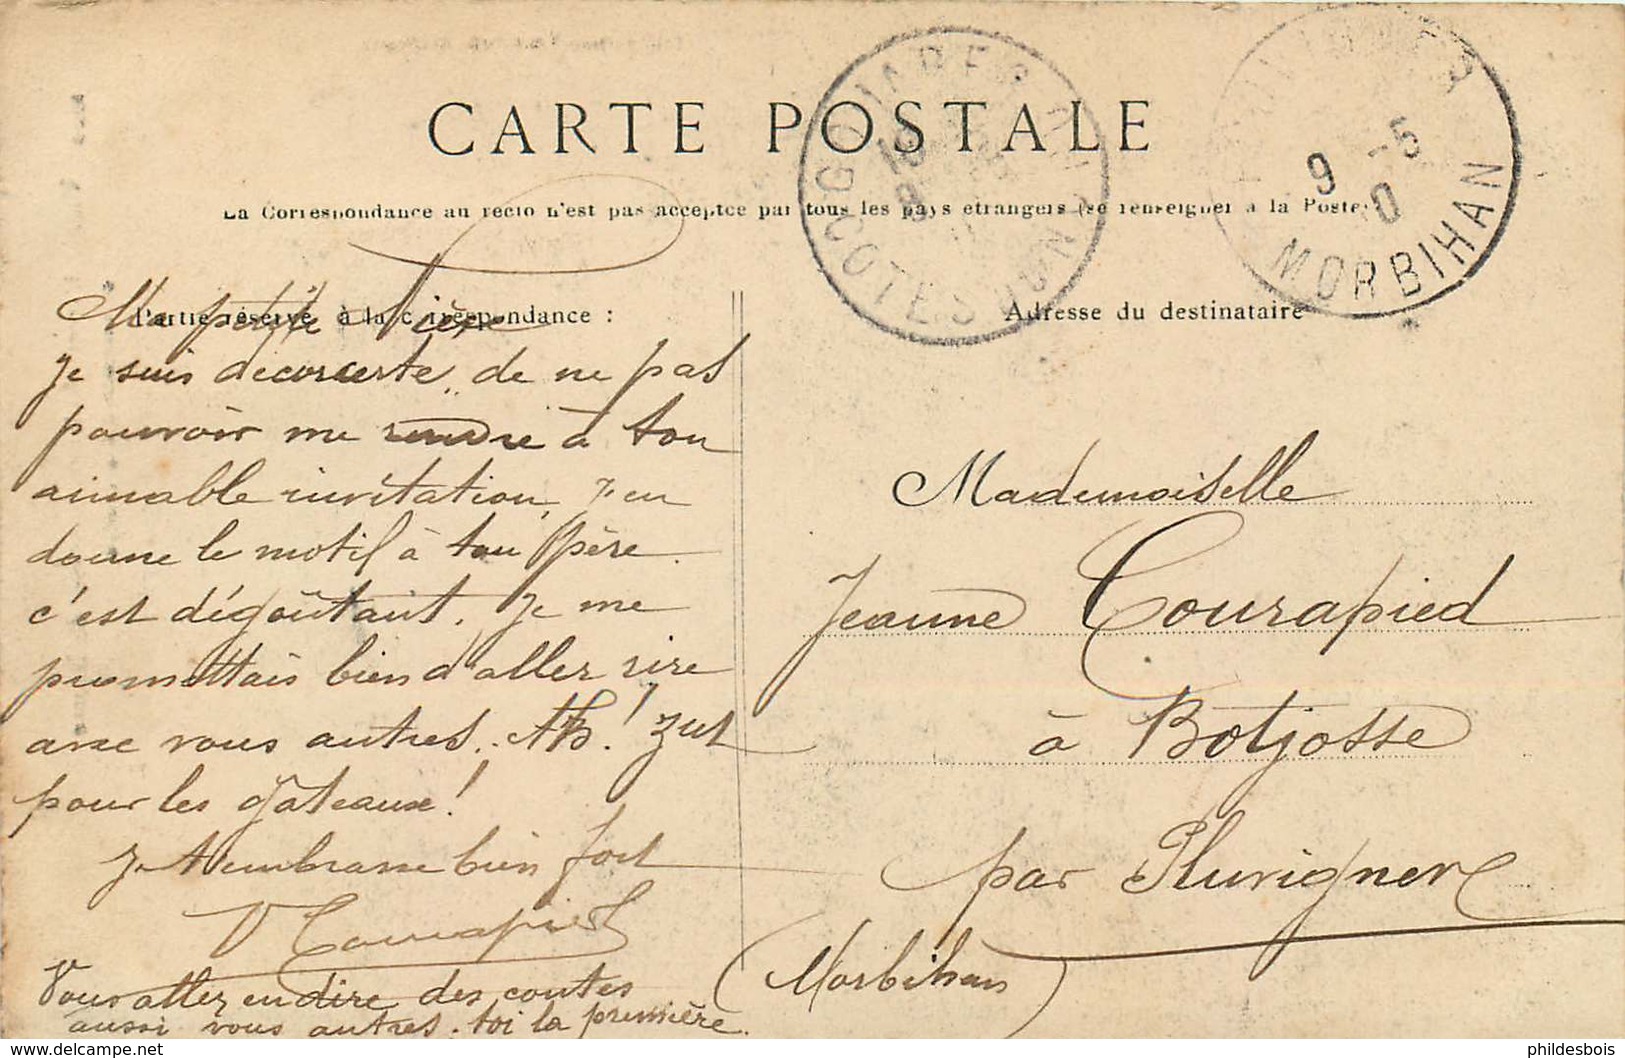 CARTE POSTALE
La Correspondance au recto n'est pas acceptée par tous les pays étrangers (se renseigner à la Poste)
Partie réservée à la correspondance :
Adresse du destinataire
MORBIHAN
9 -5
COTES DU N
Ma petite Nièce
Je suis de ne pas
pouvoir me rendre à ton
aimable invitation, j'en
donne le motif à ton père.
c'est dégoûtant. Je me
promettais bien d'aller rire
avec vous autres.. Ah! Zut
pour les gâteaux!
Je t'embrasse bien fort
V Courapied
Vous allez en dire des contes
aussi vous autres. toi la première.
Mademoiselle
Jeanne Courapied
à Botjosse
par Pluvigner
(Morbihan)
www.delcampe.net
phildesbois